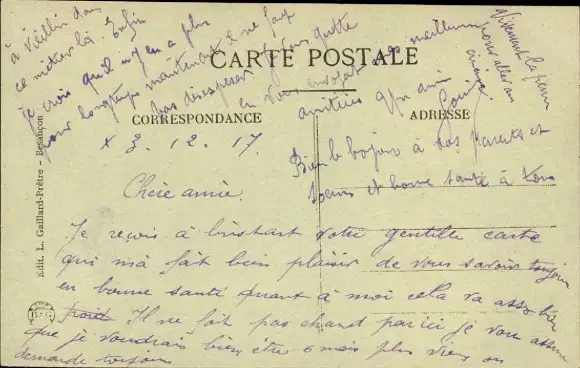 CARTE POSTALE
CORRESPONDANCE
ADRESSE
Edit. L. Gaillard-Prêtre - Besançon
x 3. 12. 17.
Chère amie.
Je reçois à l'instant votre gentille carte
qui m'a fait bien plaisir de vous savoir toujours
en bonne santé quant à moi cela va asse bien
Il ne fait pas chaud par ici je vous assure
que je voudrais bien être 6 mois plus vieux on
demande toujours
à vieillir dans
ce métier là. Enfin
je crois qu'il n'y en a plus
pour longtemps maintenant il ne faut
pas désespérer je vous quitte
en vous envoyant mes meilleures
amitiés Un ami
Louis
Bien le bonjour à vos parents et
soeurs et bonne santé à tous